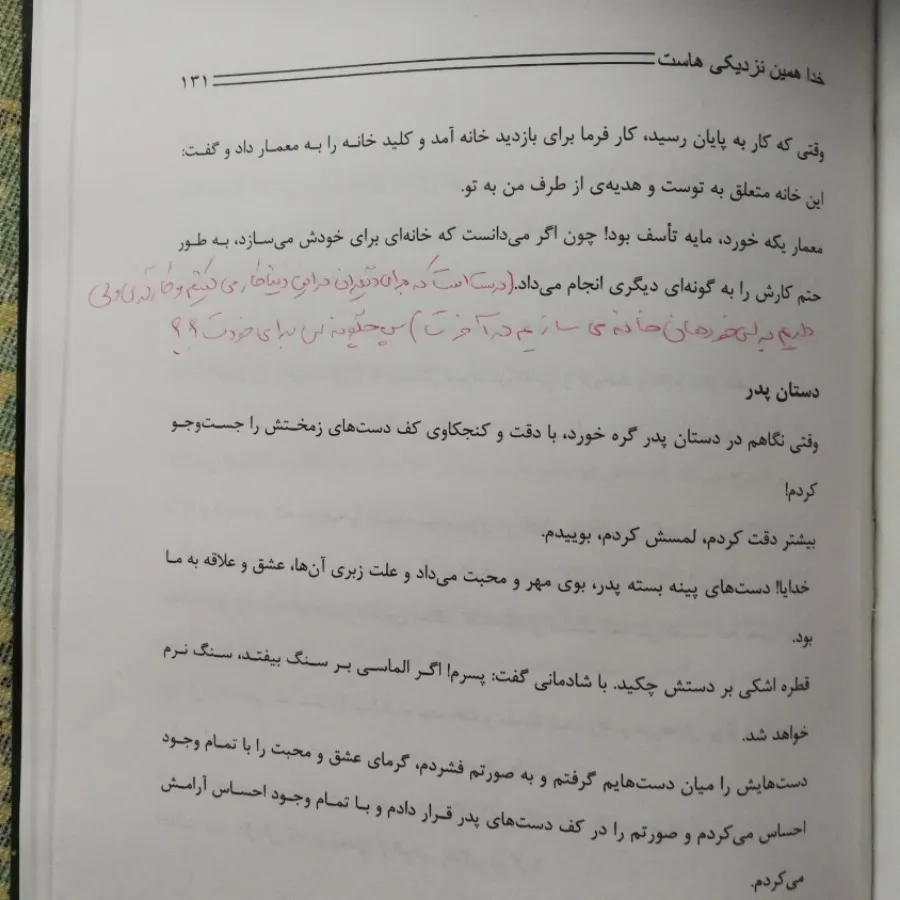 خدا همین نزدیکی هاست
۱۳۱
وقتی که کار به پایان رسید، کار فرما برای بازدید خانه آمد و کلید خانه را به معمار داد و گفت:
این خانه متعلق به توست و هدیه‌ی از طرف من به تو.
معمار یکه خورد، مایه تأسف بود! چون اگر می‌دانست که خانه‌ای برای خودش می‌سازد، به طور
حتم کارش را به گونه‌ای دیگری انجام می‌داد. (درست است که برای دیگران در این دنیا کار می‌کنیم و
خانه می سازیم در آخرت) پس چگونه برای خودت؟؟
دستان پدر
وقتی نگاهم در دستان پدر گره خورد، با دقت و کنجکاوی کف دست‌های زمختش را جست‌وجو
کردم!
بیشتر دقت کردم، لمسش کردم، بوییدم.
خدایا! دست‌های پینه بسته پدر، بوی مهر و محبت می‌داد و علت زبری آن‌ها، عشق و علاقه به ما
بود.
قطره اشکی بر دستش چکید. با شادمانی گفت: پسرم! اگر الماسی بر سنگ بیفتد، سنگ نرم
خواهد شد.
دست‌هایش را میان دست‌هایم گرفتم و به صورتم فشردم، گرمای عشق و محبت را با تمام وجود
احساس می‌کردم و صورتم را در کف دست‌های پدر قرار دادم و با تمام وجود احساس آرامش
می‌کردم.